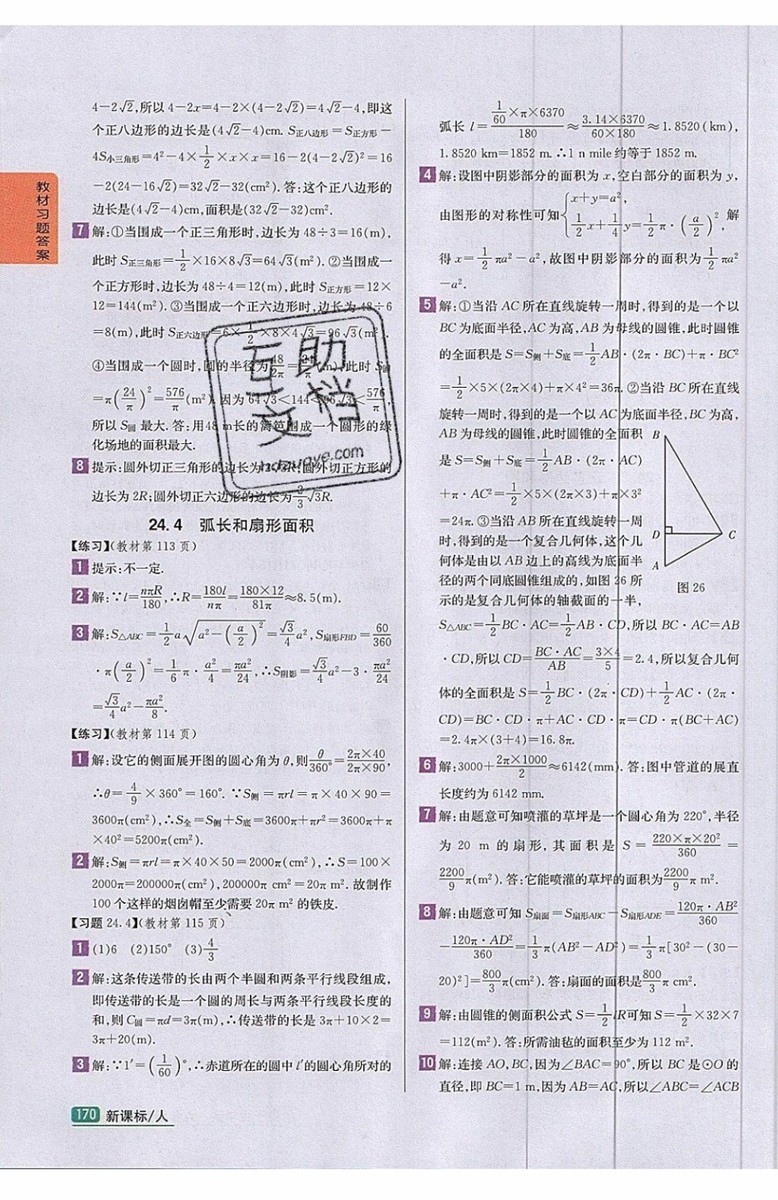 教材习题答案
4-2√2,所以4-2x=4-2×(4-2√2)=4√2-4,即这
个正八边形的边长是(4√2-4)cm. S正八边形=S正方形-
4S小三角形=4²-4×1/2×x×x=16-2(4-2√2)²=16
-2(24-16√2)=32√2-32(cm²).答:这个正八边形的
边长是(4√2-4)cm,面积是(32√2-32)cm².
7 解:①当围成一个正三角形时,边长为48÷3=16(m),
此时S正三角形=1/2×16×8√3=64√3(m²).②当围成一
个正方形时,边长为48÷4=12(m),此时S正方形=12×
12=144(m²).③当围成一个正六边形时,边长为48÷6
=8(m),此时S正六边形=6×1/2×8×4√3=96√3(m²).
④当围成一个圆时,圆的半径为48/2π=24/π(m),此时S圆
=π(24/π)²=576/π(m²).因为64√3<144<96√3<576/π,
所以S圆最大.答:用48 m长的篱笆围成一个圆形的绿
化场地的面积最大.
8 提示:圆外切正三角形的边长为2√3R;圆外切正方形的
边长为2R;圆外切正六边形的边长为2/3√3R.
互助
文档
hdzuoye.com
24.4 弧长和扇形面积
【练习】(教材第113页)
1 提示:不一定.
2 解:∵l=nπR/180,∴R=180l/nπ=180×12/81π≈8.5(m).
3 解:S△ABC=1/2a√(a²-(a/2)²)=√3/4a²,S扇形FBD=60/360
·π(a/2)²=1/6π·a²/4=πa²/24,∴S阴影=√3/4a²-3·πa²/24
=√3/4a²-πa²/8.
【练习】(教材第114页)
1 解:设它的侧面展开图的圆心角为θ,则θ/360°=2π×40/2π×90,
∴θ=4/9×360°=160°.∵S侧=πrl=π×40×90=
3600π(cm²),∴S全=S侧+S底=3600π+πr²=3600π+π
×40²=5200π(cm²).
2 解:S侧=πrl=π×40×50=2000π(cm²),∴S=100×
2000π=200000π(cm²),200000π cm²=20π m².故制作
100个这样的烟囱帽至少需要20π m²的铁皮.
【习题24.4】(教材第115页)
1 (1)6 (2)150° (3)4/3
2 解:这条传送带的长由两个半圆和两条平行线段组成,
即传送带的长是一个圆的周长与两条平行线段长度的
和,则C圆=πd=3π(m),∴传送带的长是3π+10×2=
3π+20(m).
3 解:∵1′=(1/60)°,∴赤道所在的圆中1′的圆心角所对的
弧长l=(1/60×π×6370)/180≈3.14×6370/60×180≈1.8520(km),
1.8520 km=1852 m.∴1 n mile约等于1852 m.
4 解:设图中阴影部分的面积为x,空白部分的面积为y,
由图形的对称性可知{x+y=a², 1/2x+1/4y=1/2π·(a/2)², 解
得x=1/2πa²-a²,故图中阴影部分的面积为1/2πa²
-a².
5 解:①当沿AC所在直线旋转一周时,得到的是一个以
BC为底面半径,AC为高,AB为母线的圆锥,此时圆锥
的全面积是S=S侧+S底=1/2AB·(2π·BC)+π·BC²
=1/2×5×(2π×4)+π×4²=36π.②当沿BC所在直线
旋转一周时,得到的是一个以AC为底面半径,BC为高,
AB为母线的圆锥,此时圆锥的全面积
是S=S侧+S底=1/2AB·(2π·AC)
+π·AC²=1/2×5×(2π×3)+π×3²
=24π.③当沿AB所在的直线旋转一周
时,得到的是一个复合几何体,这个几
何体是由以AB边上的高线为底面半
径的两个同底圆锥组成的,如图26所
示的是复合几何体的轴截面的一半,
B
D
C
A
图26
S△ABC=1/2BC·AC=1/2AB·CD,所以BC·AC=AB
·CD,所以CD=BC·AC/AB=3×4/5=2.4,所以复合几何
体的全面积是S=1/2BC·(2π·CD)+1/2AC·(2π·
CD)=BC·CD·π+AC·CD·π=CD·π(BC+AC)
=2.4π×(3+4)=16.8π.
6 解:3000+2π×1000/2≈6142(mm).答:图中管道的展直
长度约为6142 mm.
7 解:由题意可知喷灌的草坪是一个圆心角为220°,半径
为20 m的扇形,其面积是S=220×π×20²/360=
2200/9π(m²).答:它能喷灌的草坪的面积为2200/9π m².
8 解:由题意可知S扇面=S扇形ABC-S扇形ADE=120π·AB²/360
-120π·AD²/360=1/3π(AB²-AD²)=1/3π[30²-(30-
20)²]=800/3π(cm²).答:扇面的面积是800/3π cm².
9 解:由圆锥的侧面积公式S=1/2lR可知S=1/2×32×7
=112(m²).答:所需油毡的面积至少为112 m².
10 解:连接AO,BC,因为∠BAC=90°,所以BC是⊙O的
直径,即BC=1 m,因为AB=AC,所以∠ABC=∠ACB
170 新课标/人